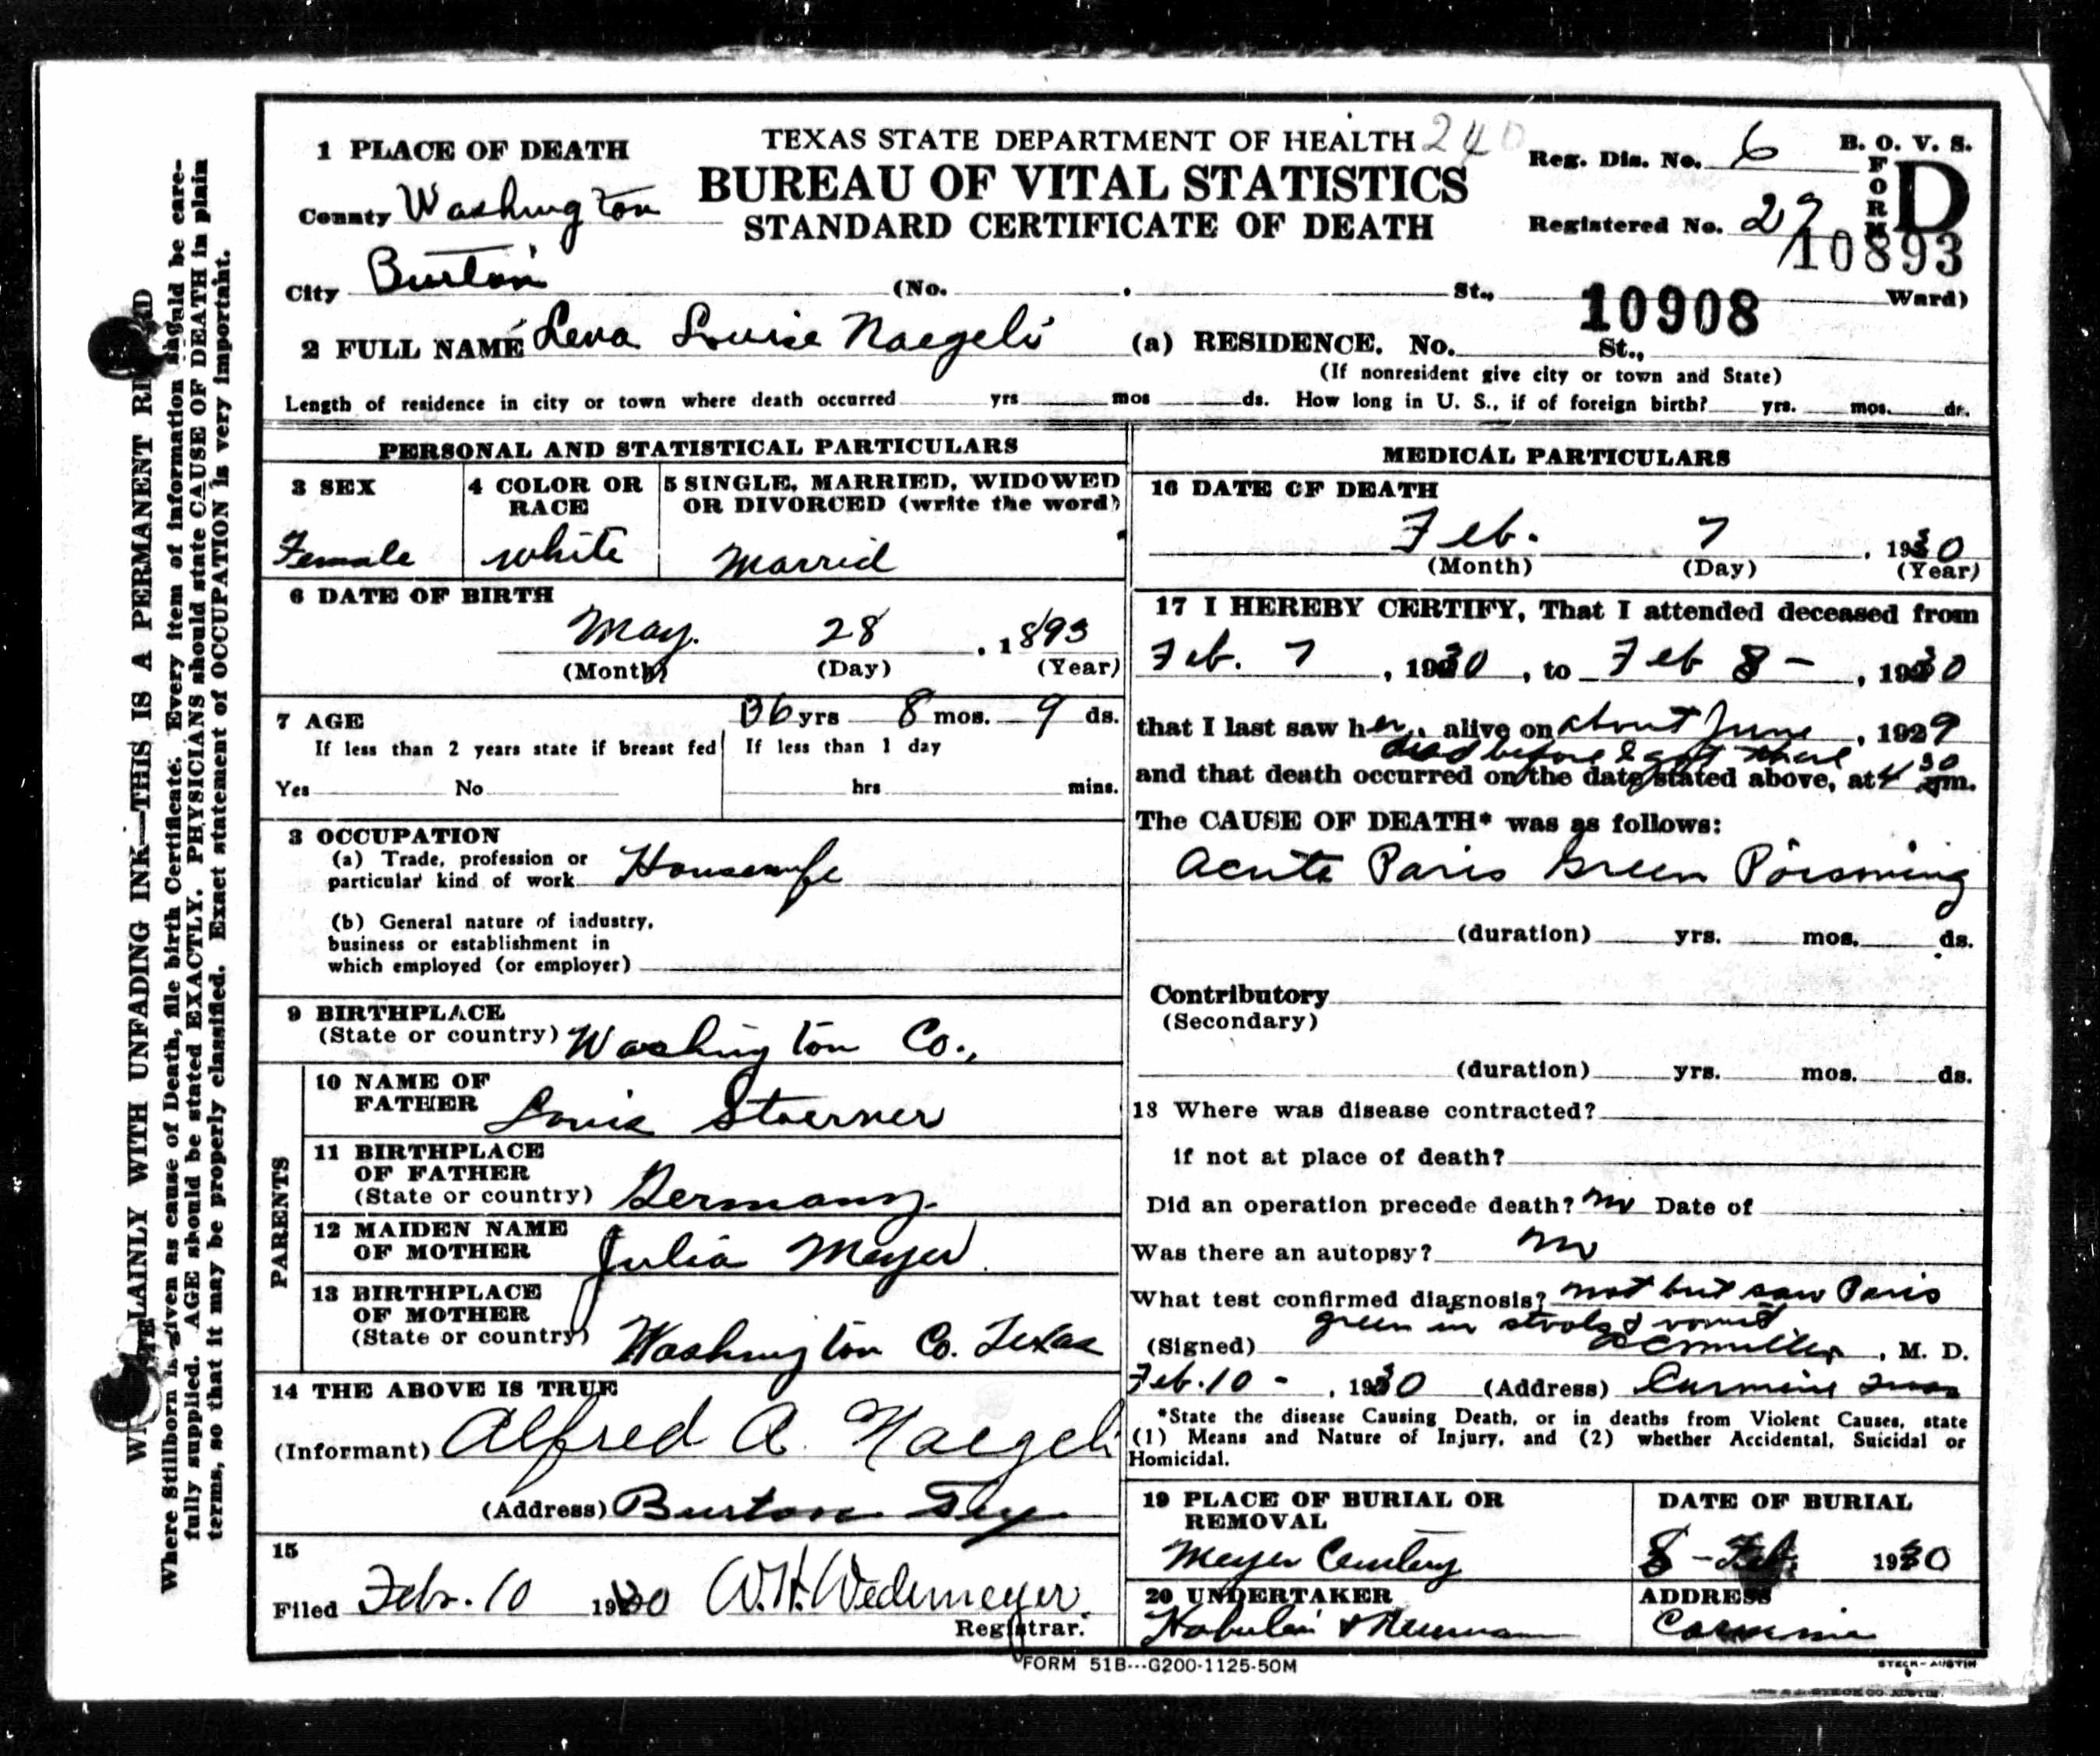 TEXAS STATE DEPARTMENT OF HEALTH 240
BUREAU OF VITAL STATISTICS
STANDARD CERTIFICATE OF DEATH
Reg. Dis. No. 6
B. O. V. S.
FORM D
Registered No. 27
10893
10908
1 PLACE OF DEATH
County Washington
City Burton (No. St., Ward)
2 FULL NAME Leva Louise Naegeli (a) RESIDENCE. No. St.,
(If nonresident give city or town and State)
Length of residence in city or town where death occurred yrs mos ds. How long in U. S., if of foreign birth? yrs. mos. ds.
PERSONAL AND STATISTICAL PARTICULARS
3 SEX
Female
4 COLOR OR RACE
white
5 SINGLE, MARRIED, WIDOWED
OR DIVORCED (write the word)
Married
6 DATE OF BIRTH
May. 28, 1893
(Month) (Day) (Year)
7 AGE 36 yrs 8 mos. 9 ds.
If less than 2 years state if breast fed
Yes No
If less than 1 day
hrs mins.
8 OCCUPATION
(a) Trade, profession or
particular kind of work Housewife
(b) General nature of industry,
business or establishment in
which employed (or employer)
9 BIRTHPLACE
(State or country) Washington Co.,
PARENTS
10 NAME OF
FATHER Louis Stoerner
11 BIRTHPLACE
OF FATHER
(State or country) Germany.
12 MAIDEN NAME
OF MOTHER Julia Meyer
13 BIRTHPLACE
OF MOTHER
(State or country) Washington Co. Texas
14 THE ABOVE IS TRUE
(Informant) Alfred A. Naegeli
(Address) Burton Tex
15
Filed Febr. 10 1930 W.H. Wedemeyer.
Registrar.
MEDICAL PARTICULARS
16 DATE OF DEATH
Feb. 7, 1930
(Month) (Day) (Year)
17 I HEREBY CERTIFY, That I attended deceased from
Feb. 7, 1930, to Feb 8 -, 1930
that I last saw her alive on about June, 1929
dead before I got there
and that death occurred on the date stated above, at 4 30 m.
The CAUSE OF DEATH* was as follows:
Acute Paris Green Poisoning
(duration) yrs. mos. ds.
Contributory
(Secondary)
(duration) yrs. mos. ds.
18 Where was disease contracted?
if not at place of death?
Did an operation precede death? no Date of
Was there an autopsy? no
What test confirmed diagnosis? not but saw Paris
green in stools & vomit
(Signed) M. D.
Feb. 10 -, 1930 (Address) Carmine Texas
*State the disease Causing Death, or in deaths from Violent Causes, state
(1) Means and Nature of Injury, and (2) whether Accidental, Suicidal or
Homicidal.
19 PLACE OF BURIAL OR
REMOVAL
Meyer Cemtery
DATE OF BURIAL
8 - Feb. 1930
20 UNDERTAKER
& Neuman
ADDRESS
Carmine
FORM 51B---G200-1125-50M
STECK-AUSTIN
WRITE PLAINLY WITH UNFADING INK—THIS IS A PERMANENT RECORD
Where Stillborn is given as cause of Death, file birth Certificate. Every item of information should be care-
fully supplied. AGE should be stated EXACTLY. PHYSICIANS should state CAUSE OF DEATH in plain
terms, so that it may be properly classified. Exact statement of OCCUPATION is very important.